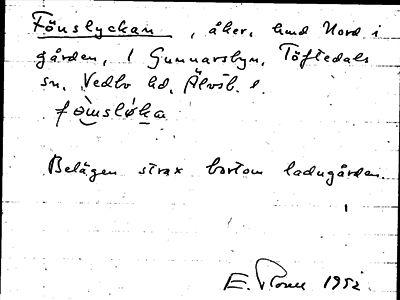 Fönslyckan, åker, hmd Nord i
gården, 1 Gunnarsbyn, Töftedals
sn, Vedbo hd, Älvsb. l.
fö̀nsløka
Belägen strax bortom ladugården.
E. 1952